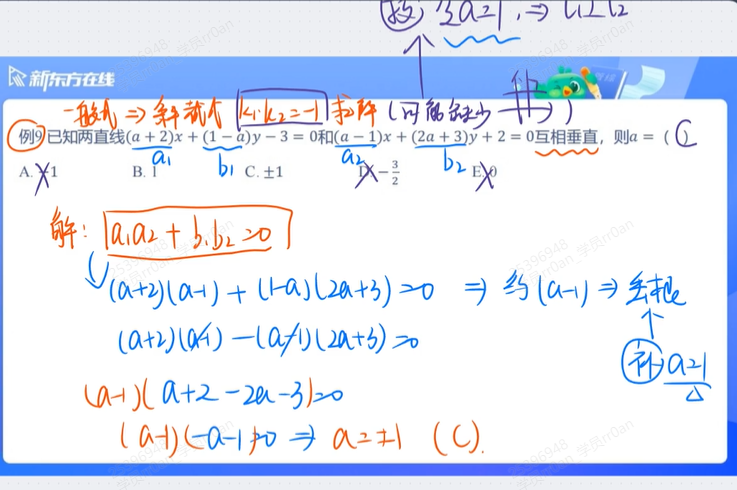 a=1, ⇒ l₁⊥l₂
新东方在线
一般式 ⇒ 条件 k₁·k₂=-1 求解 (可能缺少
例9 已知两直线(a + 2)x + (1 − a)y − 3 = 0和(a − 1)x + (2a + 3)y + 2 = 0互相垂直，则a = ( C
a₁ b₁ a₂ b₂
A. -1 B. 1 C. ±1 D. −3/2 E. 0
解: a₁a₂ + b₁b₂ = 0
(a+2)(a-1) + (1-a)(2a+3) = 0 ⇒ 约(a-1) ⇒ 丢根
(a+2)(a-1) - (a-1)(2a+3) = 0
补 a=1
(a-1)(a+2-2a-3)=0
(a-1)(-a-1)=0 ⇒ a=±1 (C).